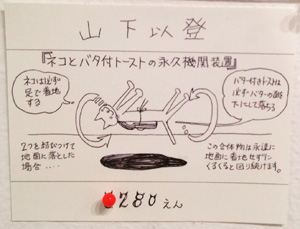 山下以登
『ネコとバタ付トーストの永久機関装置』
ネコは必ず
足で着地
する
バター付きトーストは
必ずバターの面を
下にして落ちる
2つを結びつけて
地面に落とした
場合‥‥
この合体物は永遠に
地面に着地せずに
くるくると回り続けます。
280えん